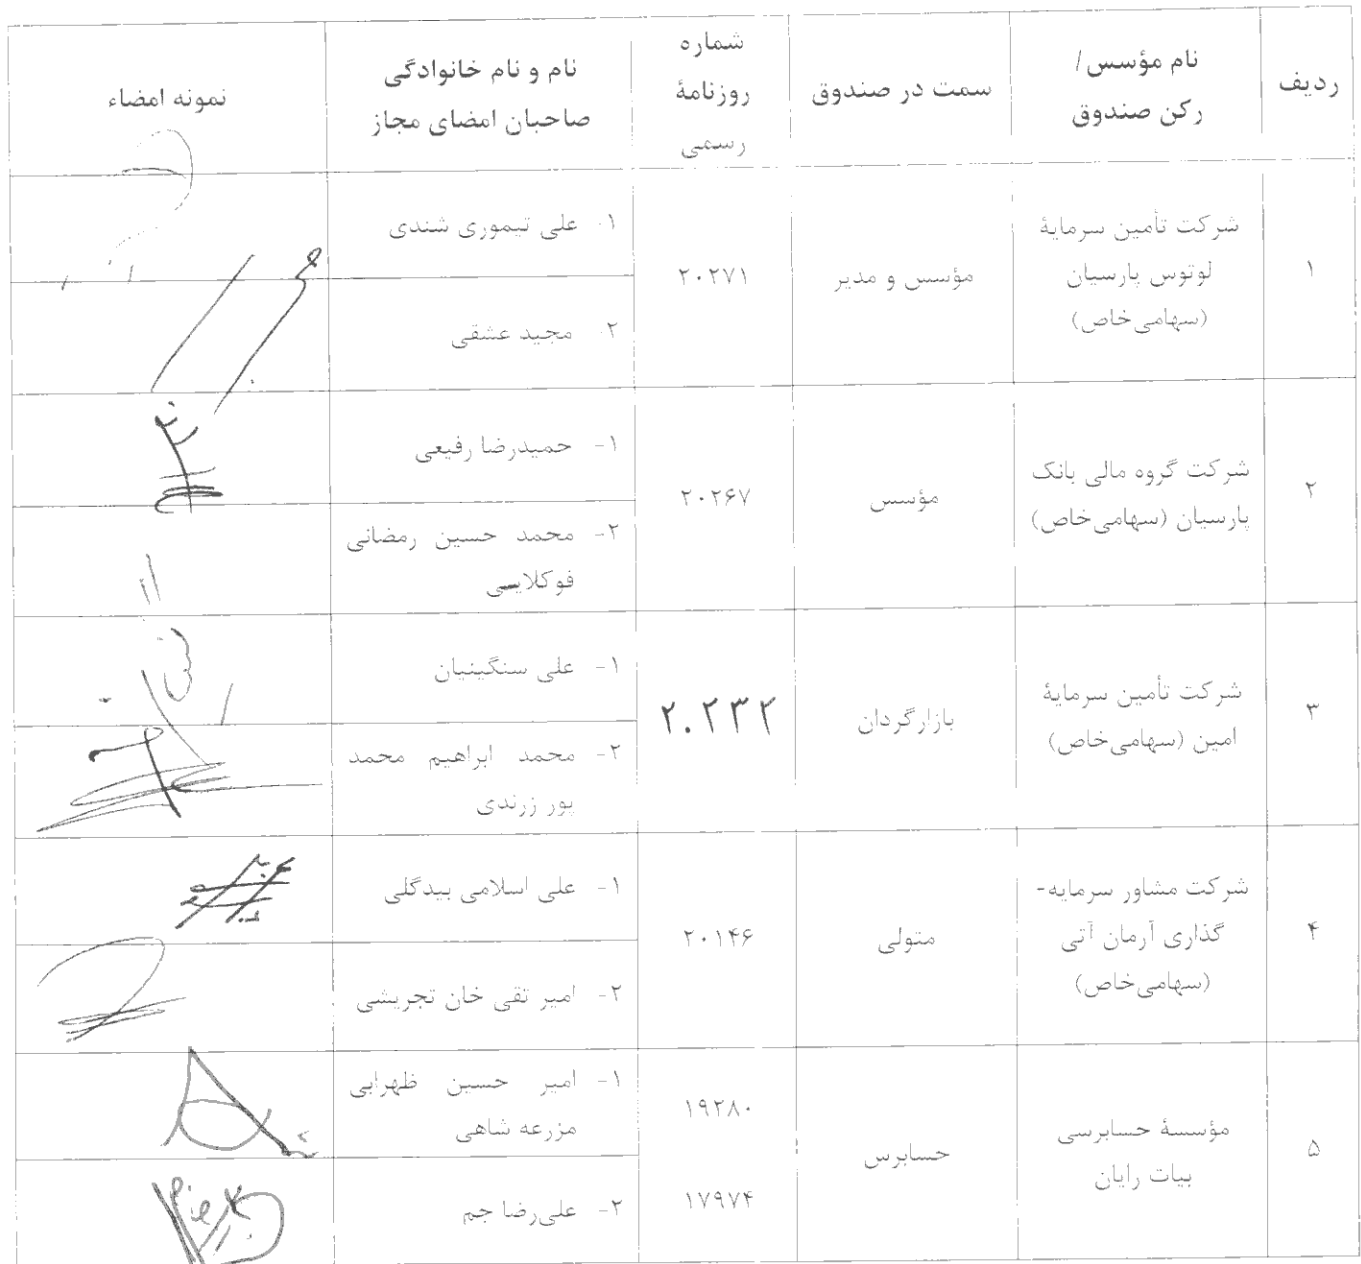 ردیف
نام مؤسس/
رکن صندوق
سمت در صندوق
شماره
روزنامهٔ
رسمی
نام و نام خانوادگی
صاحبان امضای مجاز
نمونه امضاء
۱
شرکت تأمین سرمایهٔ
لوتوس پارسیان
(سهامی‌خاص)
مؤسس و مدیر
۲۰۲۷۱
۱- علی تیموری شندی
۲- مجید عشقی
۲
شرکت گروه مالی بانک
پارسیان (سهامی‌خاص)
مؤسس
۲۰۲۶۷
۱- حمیدرضا رفیعی
۲- محمد حسین رمضانی
فوکلایی
۳
شرکت تأمین سرمایهٔ
امین (سهامی‌خاص)
بازارگردان
۲۰۲۳۲
۱- علی سنگینیان
۲- محمد ابراهیم محمد
پور زرندی
۴
شرکت مشاور سرمایه-
گذاری آرمان آتی
(سهامی‌خاص)
متولی
۲۰۱۴۶
۱- علی اسلامی بیدگلی
۲- امیر تقی خان تجریشی
۵
مؤسسهٔ حسابرسی
بیات رایان
حسابرس
۱۹۲۸۰
۱۷۹۷۴
۱- امیر حسین ظهرابی
مزرعه شاهی
۲- علی‌رضا جم